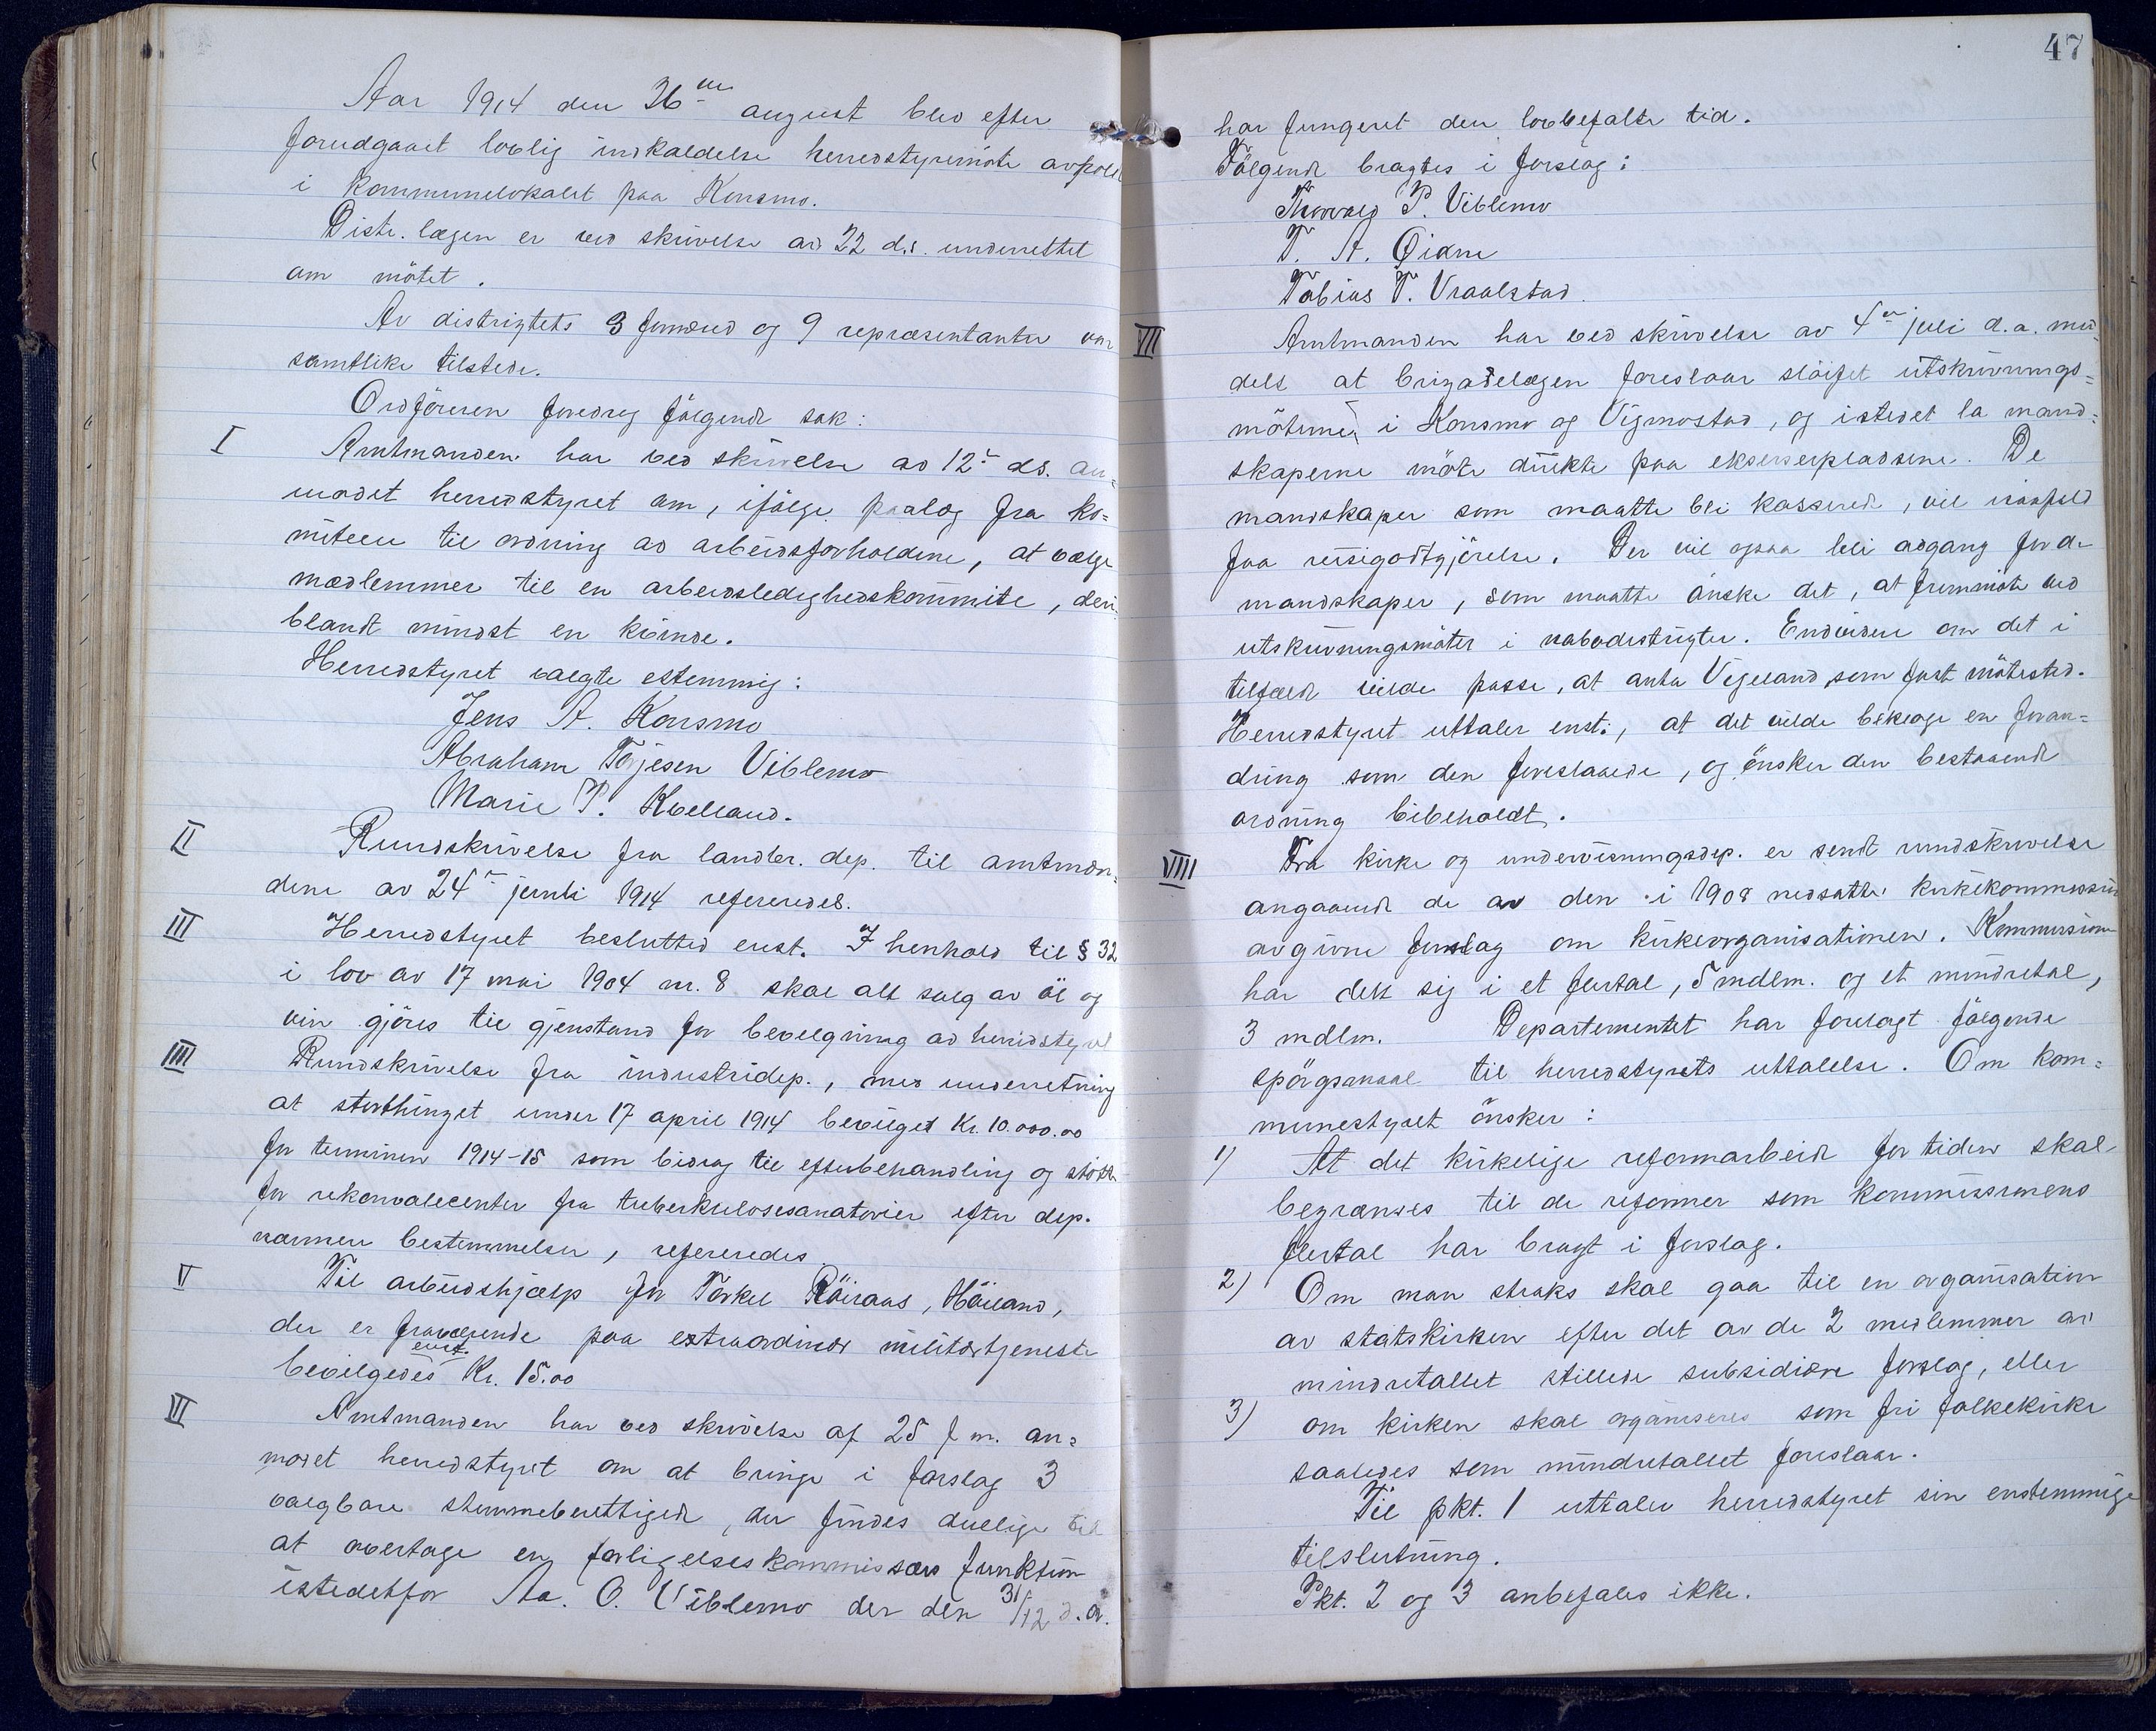 Aar 1914 den 26de august blev efter
forudgaaet lovlig indkaldelse herredstyremöte avholdt
i kommunelokalet paa Konsmo.
Distr. lægen er ved skrivelse av 22 d.s. underrettet
om mötet.
Av distriqtets 3 formænd og 9 repræsentanter var
samtlike tilstede.
Ordföreren foredrog fölgende sak:
I Amtmanden har ved skrivelse av 12te ds. an=
modet herredstyret om, ifölge paalæg fra ko=
miteen til ordning av arbeidsforholdene, at vælge
medlemmer til en arbeidsledighedskommite, deri
blandt mindst en kvinde.
Herredstyret valgte estemmig:
Jens A. Konsmo
Abraham Torjesen Viblemo
Marie T. Kvelland.
II Rundskrivelse fra landbr. dep. til amtmæn=
dene av 24de juni 1914 refereredes.
III Herredstyret besluttet enst. I henhold til § 32
i lov av 17 mai 1904 nr. 8 skal alt salg av öl og
vin gjöres til gjenstand for bevilgning av herredstyret
IIII Rundskrivelse fra industridep., med underretning
at storthinget under 17 april 1914 bevilget Kr. 10.000.00
for terminen 1914-15 som bidrag til efterbehandling og stötte
for rekonvalecenter fra tuberkulosesanatorier efter dep.
nærmere bestemmelser, refereredes
V Til arbeidshjælp for Torkel Röiraas, Höiland,
der er fraværende paa extraordinær militærtjeneste
enst.
bevilgedes Kr. 15.00
VI Amtmanden har ved skrivelse af 25 f m. an=
modet herredstyret om at bringe i forslag 3
valgbare stemmeberettigede, der findes duelige til
at overtage en forligelseskommissærs funktion
istedetfor Aa. O. Viblemo der den 31/12 d. a.
47
har fungeret den lovbefalte tid.
Fölgende bragtes i forslag:
Thorvald P. Viblemo
T. A. Øiane
Tobias T. Vraalstad.
VII Amtmanden har ved skrivelse av 4de juli d.a. med=
delt at brigadelægen foreslaar slöifet utskrivnings=
möterne i Konsmo og Vigmostad, og istedet la mand=
skaperne möte direkte paa ekserserpladsene. De
mandskaper som maatte bli kasserede, vil isaafald
faa reisegodtgjörelse. Der vil ogsaa bli adgang for de
mandskaper, som maatte önske det, at fremmöte ved
utskrivningsmöter i nabodistrigter. Endvidere om det i
tilfælde vilde passe, at anta Vigeland som fast mötested.
Herredstyret uttaler enst:, at det vilde beklage en foran=
dring som den foreslaaede, og önsker den bestaaende
ordning bibeholdt.
VIIII Fra kirke og undervisningsdep. er sendt rundskrivelse
angaaende de av den i 1908 nedsatte kirkekommission
avgivne forslag om kirkeorganisationen. Kommissionen
har delt sig i et flertal, 5 mdlm. og et mindretal,
3 mdlm. Departementet har forelagt fölgende
spörgsmaal til herredstyrets uttalelse. Om kom=
munestyret önsker:
1) At det kirkelige reformarbeide for tiden skal
begrænses til de reformer som kommissionens
flertal har bragt i forslag.
2) Om man straks skal gaa til en organisation
av statskirken efter det av de 2 medlemmer av
mindretallet stillede subsidiære forslag, eller
3) om kirken skal organiseres som fri folkekirke
saaledes som mindretallet foreslaar.
Til pkt. 1 uttaler herredstyret sin enstemmige
tilslutning.
Pkt. 2 og 3 anbefales ikke.